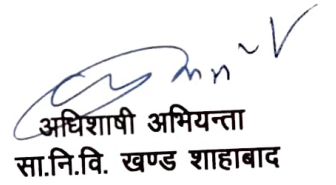 अधिशाषी अभियन्ता
सा.नि.वि. खण्ड शाहाबाद